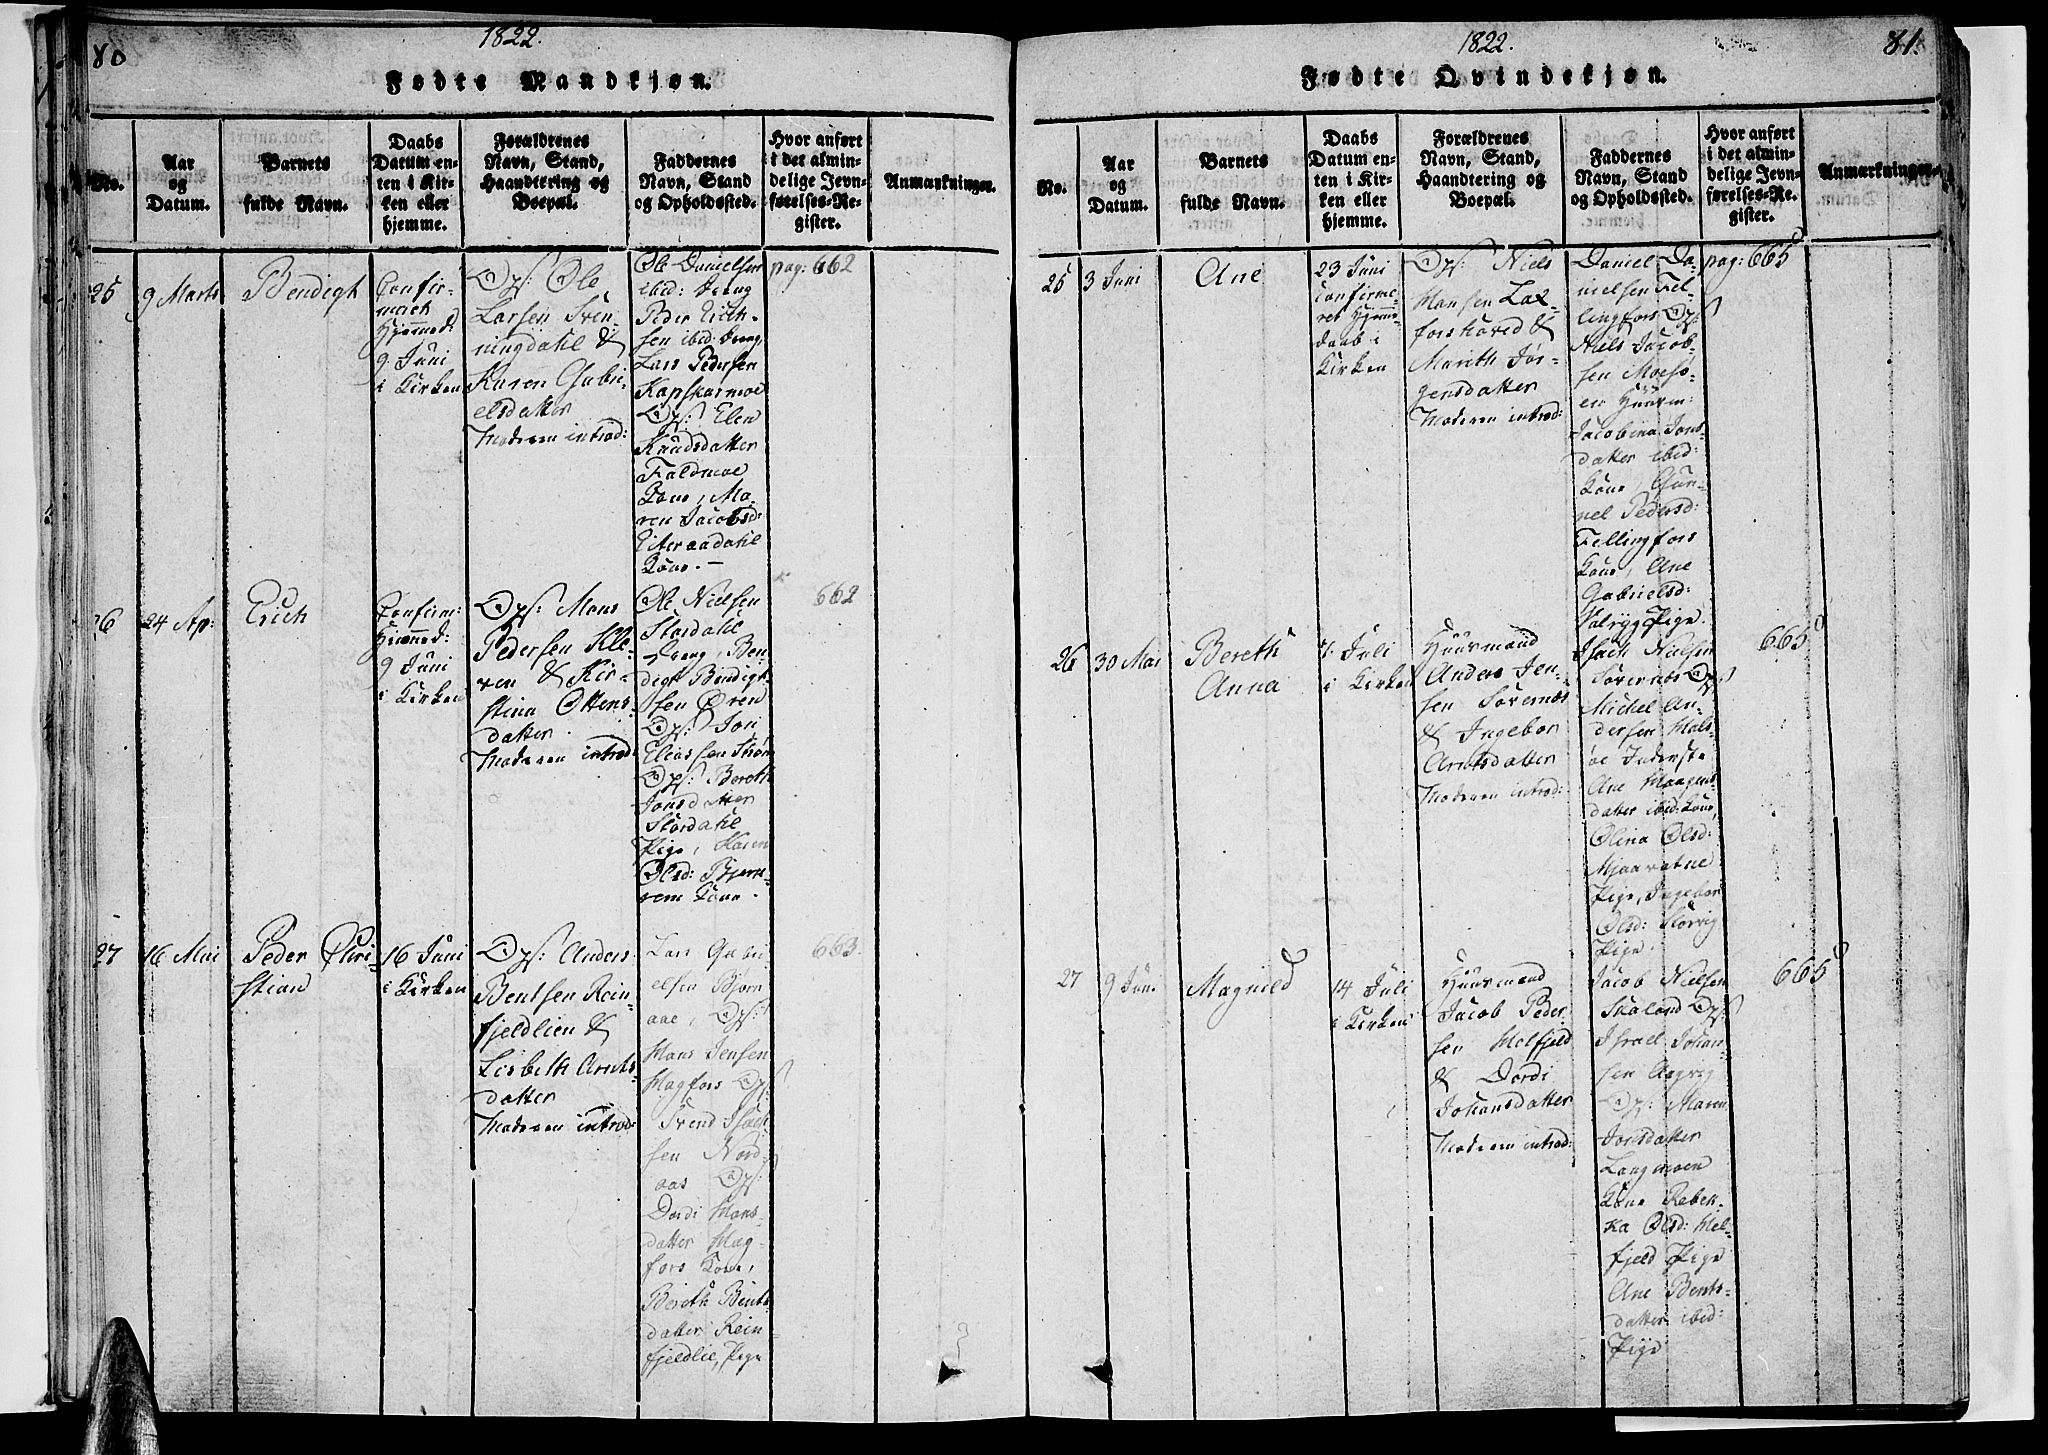 80
1822.
Fødte Mandkjøn.
No.
Aar
og
Datum.
Barnets
fulde Navn.
Daabs
Datum en-
ten i Kir-
ken eller
hjemme.
Forældrenes
Navn, Stand,
Haandtering og
Boepæl.
Faddernes
Navn, Stand
og Opholdssted.
Hvor anført
i det almin-
delige Jevn-
førelses-Re-
gister.
Anmærkninger.
25
9 Marts
Bendigt
Confir-
meret
Hjemmed:
9 Juni
i Kirken
Ops: Ole
Larsen Sven-
ningdahl &
Karen Gabri-
elsdatter
Moderen introd:
Ole Danielsen
ibid: Dreng
Peder Erich-
sen ibid: Dreng
Lars Pedersen
Kapskarmoe
Ops: Elen
Knudsdatter
Faldmoe
Kone, Ma-
ren Jacobsd:
Eiteraadahl
Kone.—
pag: 662
26
24 Ap:
Erich
Confirm:
Hjemmed:
9 Juni
i Kirken
Ops: Mons
Pedersen Kle-
ven & Kir-
stina Ottens-
datter.
Moderen introd:
Ole Nielsen
Stordahl
Dreng, Ben-
digt Bendigt-
sen Øren
Ops: Joni
Eliassen Strøm
Ops: Bereth
Jonsdatter
Stordahl
Pige, Karen
Olsd: Bjerk-
rem Kone.
662
27
16 Mai
Peder Chri-
stian
16 Juni
i Kirken
Ops: Anders
Bentsen Rein-
fjeldlien &
Lisbeth Arnts-
datter
Moderen introd:
Lars Gabri-
elsen Bjørn
aae, Ops:
Hans Jensen
Hagfors Ops:
Svend Isach-
sen Nord-
aas Ops:
Dordi Hans-
datter Hag-
fors Kone,
Bereth Bents-
datter Rein-
fjeldlie, Pige
663.
81.
1822.
Fødte Qvindekjøn.
No.
Aar
og
Datum.
Barnets
fulde Navn.
Daabs
Datum en-
ten i Kir-
ken eller
hjemme.
Forældrenes
Navn, Stand,
Haandtering og
Boepæl.
Faddernes
Navn, Stand
og Opholdssted.
Hvor anført
i det almin-
delige Jevn-
førelses-Re-
gister.
Anmærkninger.
25
3 Juni
Ane
23 Juni
confirme-
ret Hjemme-
daab i
Kirken
Ops: Niels
Hansen Lax-
forshoved &
Mareth Jør-
gensdatter
Moderen introd:
Daniel Da-
nielsen Fel-
lingfors Ops:
Niels Jacob-
sen Moesø-
en Huusm:
Jacobina Jons-
datter ibid:
Kone, Gun-
nel Pedersd:
Fellingfors
Kone, Ane
Gabrielsd:
Valryg Pige.
pag: 665
26
30 Mai
Bereth
Anna
7. Juli
i Kirken
Huusmand
Anders Jen-
sen Sørernæs
& Ingebor
Arntsdatter
Moderen introd:
Isach Nielsen
Sørernæs Ops:
Michel An-
dersen Hals-
øe Inderste
Ane Maagens-
datter ibid: Kone,
Olina Olsd:
Mjaavatne
Pige, Ingebor
Olsd: Storvig
Pige.
665
27
9 Juni
Magnild
14 Juli
i Kirken
Huusmand
Jacob Peder-
sen Helfjeld
& Dordi
Johansdatter
Moderen introd:
Jacob Nielsen
Skaland Ops:
Israel Johan-
sen Aagvig
Ops: Maren
Jonsdatter
Langmoen
Kone Rebek-
ka Olsd: Hel-
fjeld Pige
Ane Bents-
datter ibid:
Pige
665